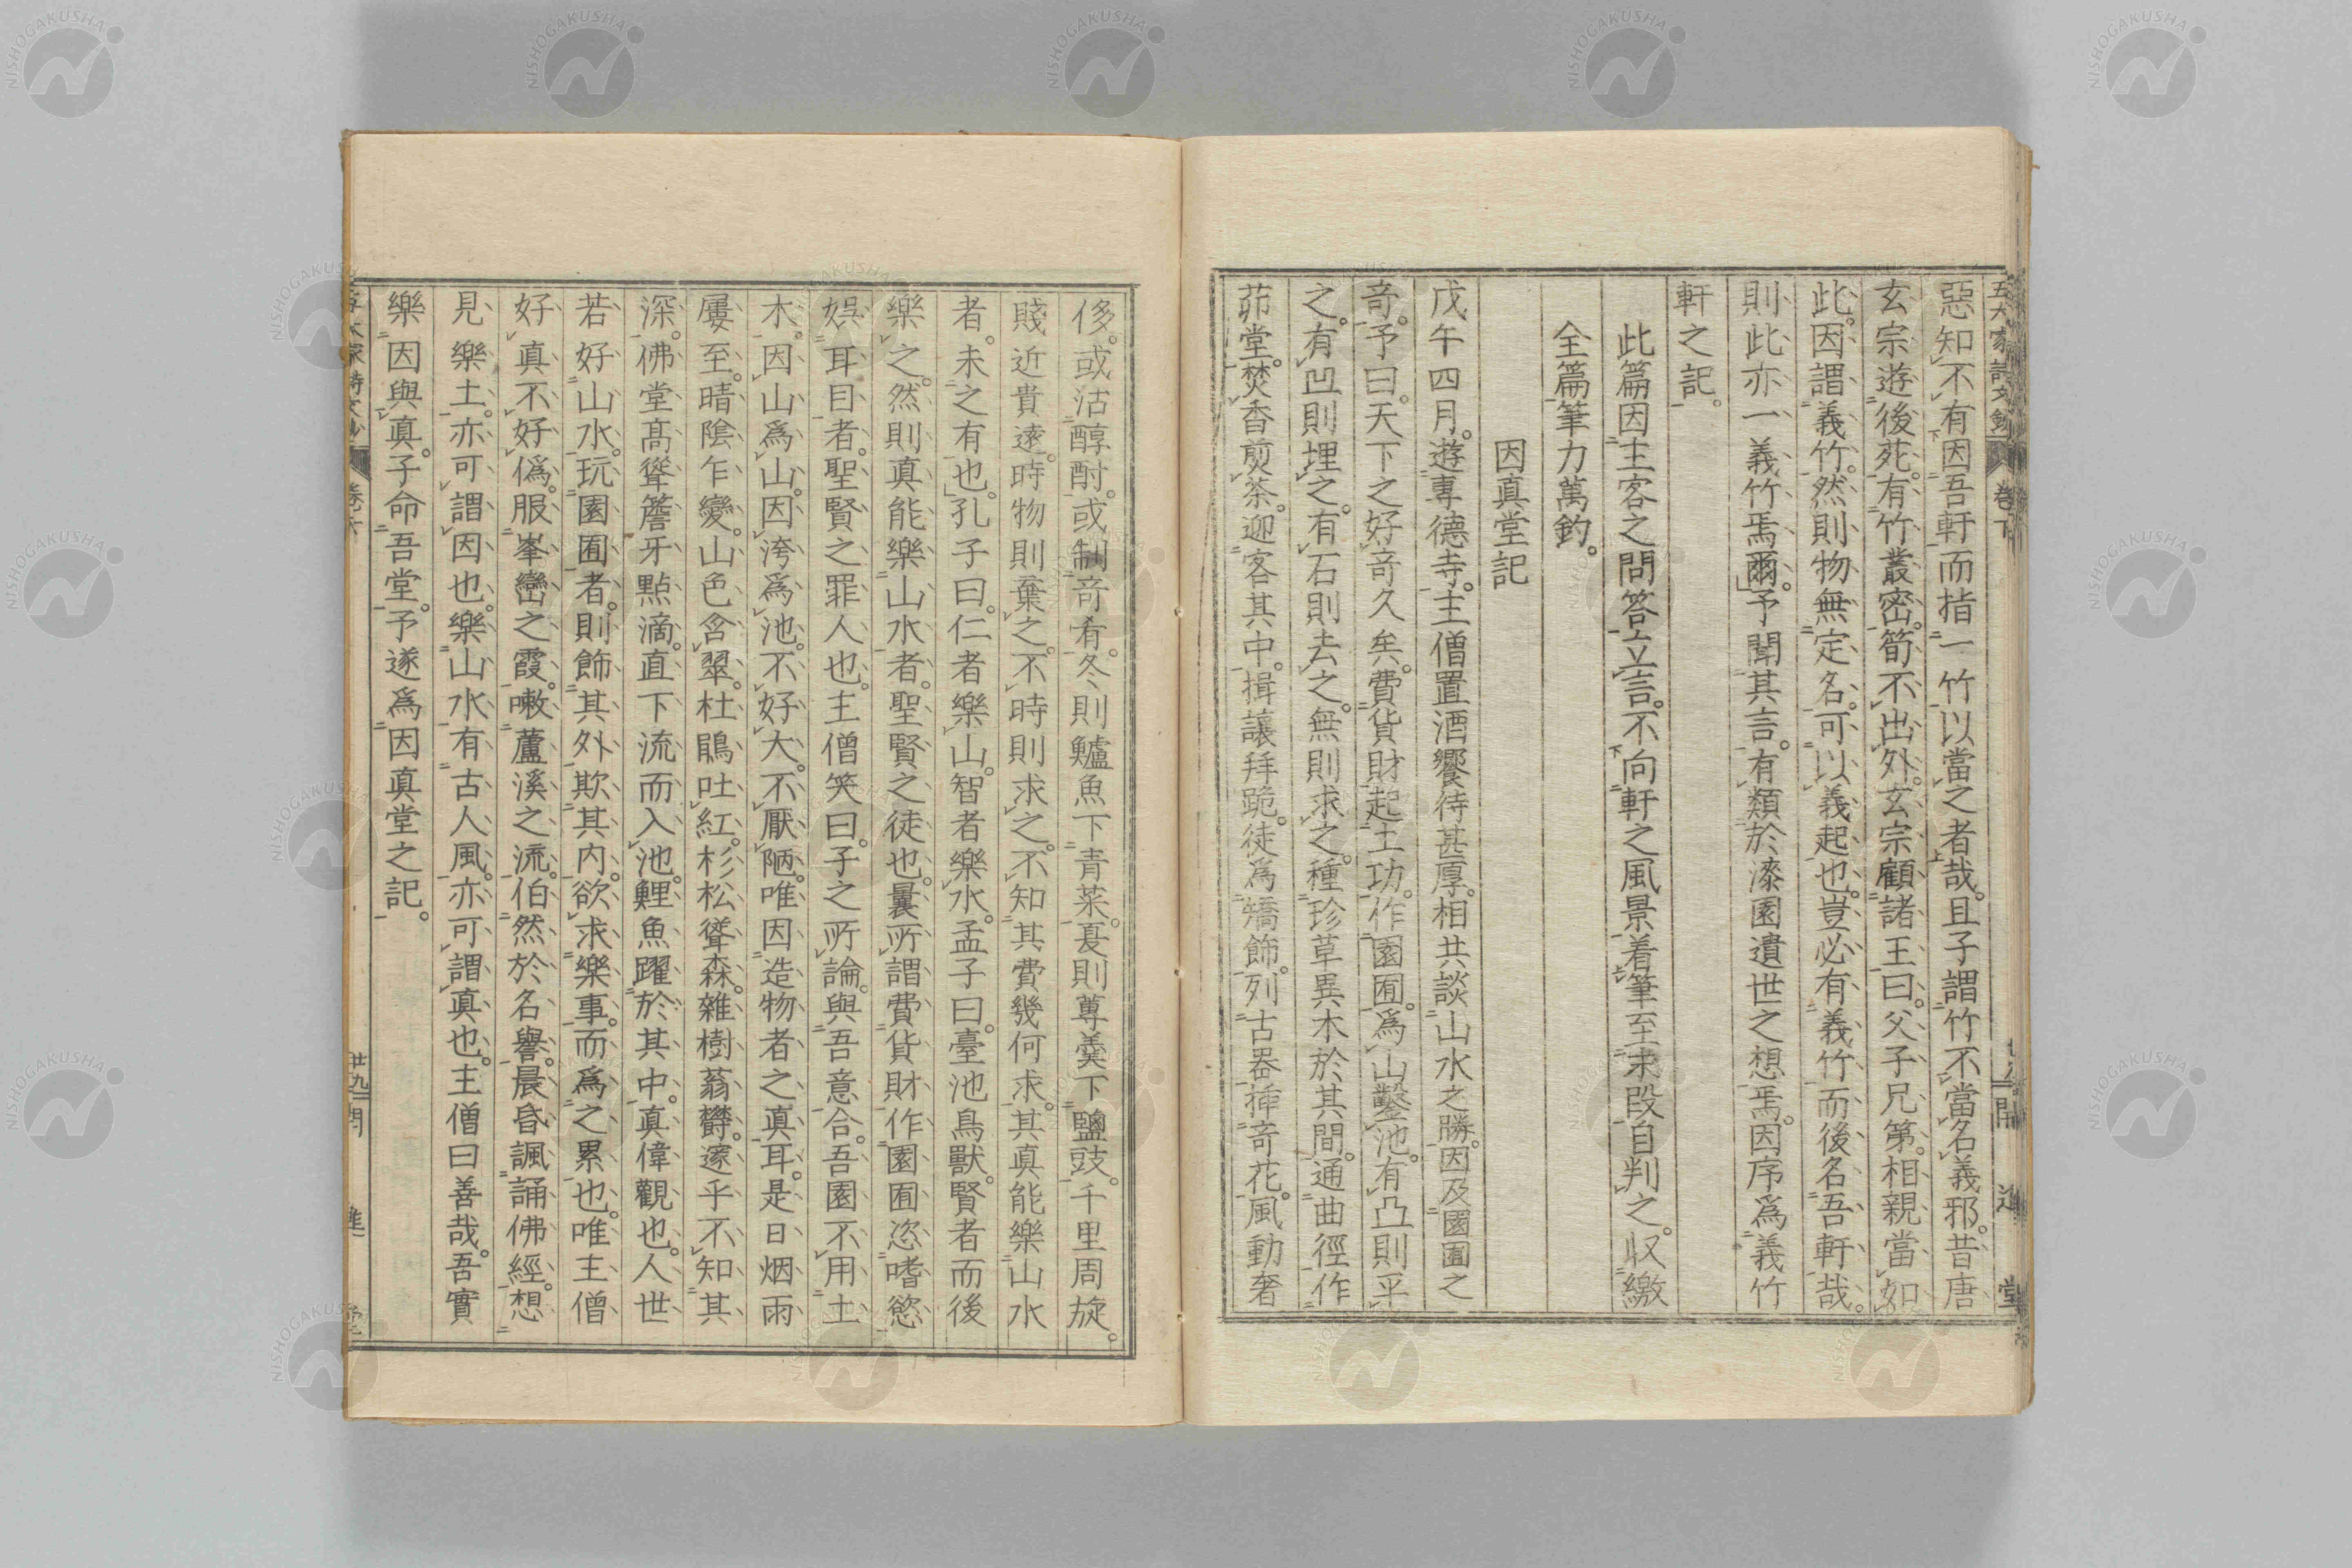 惡知不有因吾軒而指一竹以當之者哉。且子謂竹不當名義邪。昔唐
玄宗遊後苑。有竹叢密。筍不出外。玄宗顧諸王曰。父子兄第。相親當如
此。因謂義竹。然則物無定名。可以義起也。豈必有義竹而後名吾軒哉。
則此亦一義竹焉爾」予聞其言。有類於漆園遺世之想焉。因序爲義竹
軒之記。
此篇因主客之問答立言。不向軒之風景着筆至末段自判之。収繳
全篇筆力萬鈞。
因真堂記
戊午四月。遊專德寺。主僧置酒饗待甚厚。相共談山水之勝。因及園囿之
奇。予曰。天下之好奇久矣。費貨財起土功。作園囿。爲山鑿池。有凸則平
之。有凹則埋之。有石則去之。無則求之。種珍草異木於其間。通曲徑作
茆堂。焚香煎茶。迎客其中。揖讓拜跪。徒爲矯飾。列古器挿奇花。風動奢
侈。或沽醇酎。或制奇肴。冬則鱸魚下青菜。夏則蓴羹下鹽豉。千里周旋。
賤近貴遠。時物則棄之。不時則求之。不知其費幾何求。其真能樂山水
者。未之有也。」孔子曰。仁者樂山。智者樂水。孟子曰。臺池鳥獸。賢者而後
樂之。然則真能樂山水者。聖賢之徒也。曩所謂費貨財作園囿恣嗜慾
娯耳目者。聖賢之罪人也。主僧笑曰。子之所論。與吾意合。吾園不用土
木。因山爲山。因洿爲池。不好大。不厭陋。唯因造物者之真耳。是日烟雨
屢至。晴陰乍變。山色含翠。杜鵑吐紅。杉松聳森。雜樹蓊欝。邃乎不知其
深。佛堂髙聳簷牙點滴。直下流而入池。鯉魚躍於其中。真偉觀也。人世
若好山水。玩園囿者。則飾其外欺其内。欲求樂事。而爲之累也。唯主僧
好真不好僞。服峯巒之霞。嗽蘆溪之流。伯然於名譽。晨昏諷誦佛經。想
見樂土。亦可謂因也。樂山水有古人風。亦可謂真也。主僧曰善哉。吾實
樂因與真。子命吾堂。予遂爲因真堂之記。
NISHOGAKUSHA